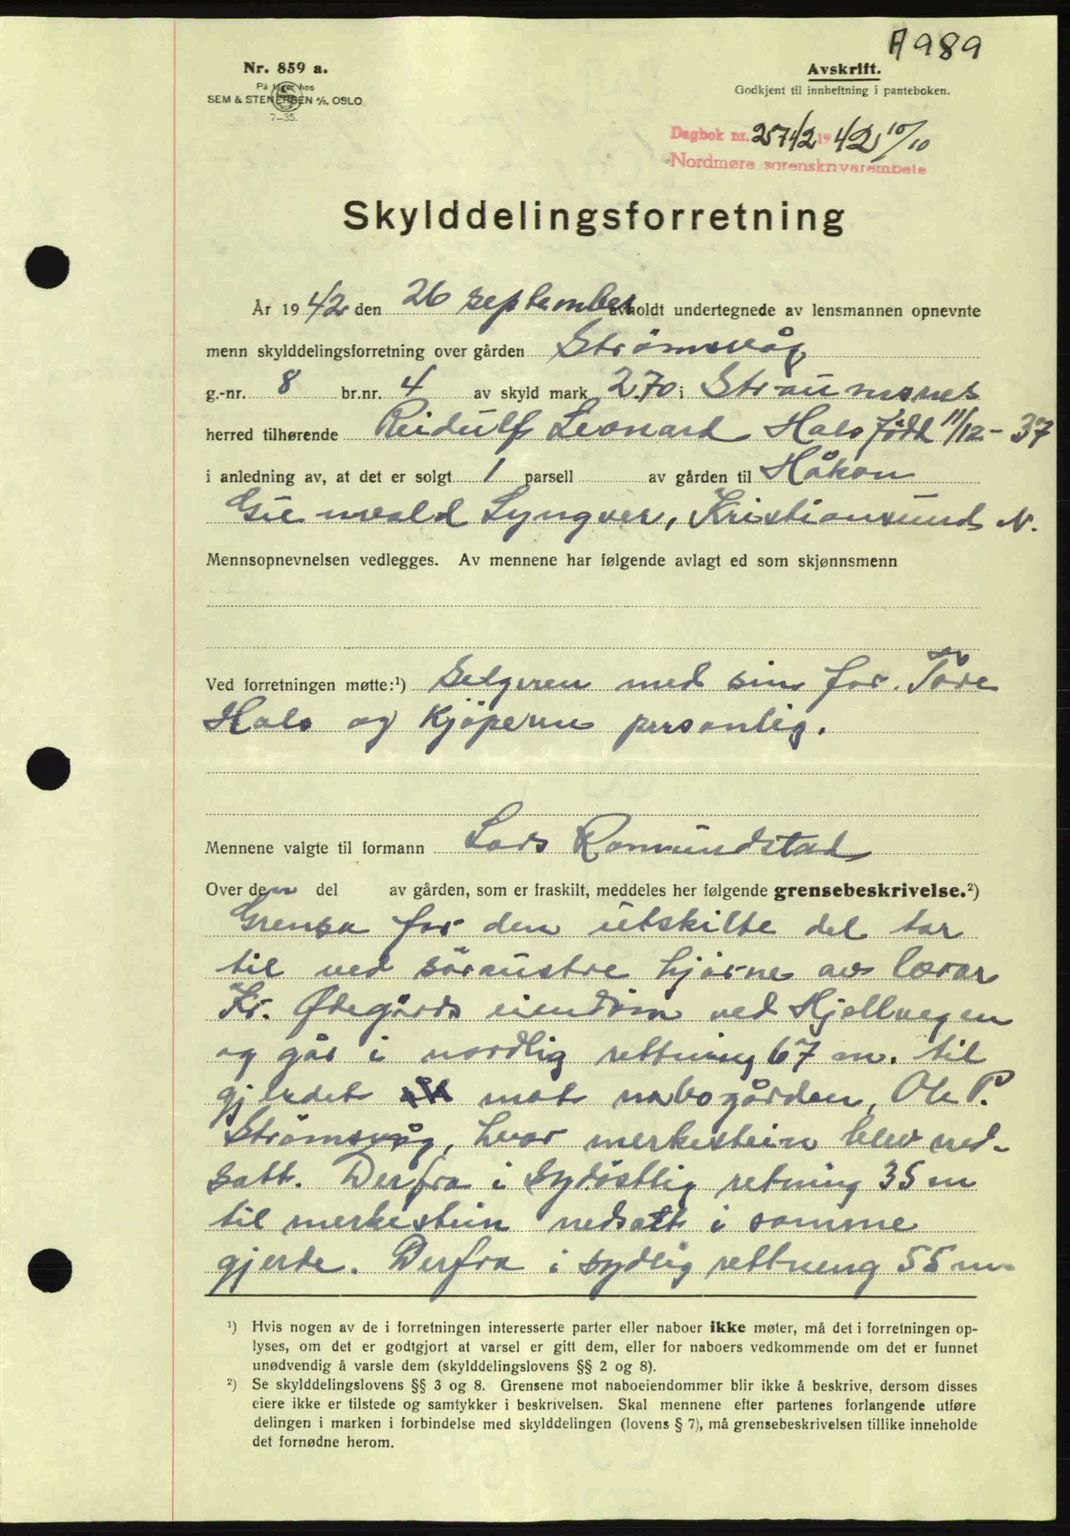 A989
Nr. 859 a.
På lager hos
SEM & STENERSEN A/S, OSLO
7–35.
Avskrift.
Godkjent til innheftning i panteboken.
Dagbok nr. 2574/2 1942 10/10
Nordmøre sorenskrivarembete
Skylddelingsforretning
År 1942 den 26 september avholdt undertegnede av lensmannen opnevnte
menn skylddelingsforretning over gården Strømsvåg
g.-nr. 8 br.nr. 4 av skyld mark 2.70 i Straumsnes
herred tilhørende Reidulf Leonard Hals född 11/12 - 37
i anledning av, at det er solgt 1 parsell av gården til Håkon
Lyngver, Kristiansund N.
Mennsopnevnelsen vedlegges. Av mennene har følgende avlagt ed som skjønnsmenn
Ved forretningen møtte:¹) Selgeren med sin far. Tore
Hals og kjøperen personlig.
Mennene valgte til formann Lars Romundstad
Over den del av gården, som er fraskilt, meddeles her følgende grensebeskrivelse.²)
Grensa for den utskilte del tar
til ved söraustre hjörne av lærar
Kr. Ødegårds eiendom ved Hjellvegen
og går i nordlig rettning 67 m. til
gjerdet mot nabogården, Ole P.
Strømsvåg, hvor merkestein blev ned-
satt. Derfra i sydöstlig retning 35 m
til merkestein nedsatt i samme
gjerde. Derfra i sydlig rettning 55 m
¹) Hvis nogen av de i forretningen interesserte parter eller naboer ikke møter, må det i forretningen op-
lyses, om det er godtgjort at varsel er gitt dem, eller for naboers vedkommende om det er funnet
unødvendig å varsle dem (skylddelingslovens §§ 2 og 8).
²) Se skylddelingslovens §§ 3 og 8. Grensene mot naboeiendommer blir ikke å beskrive, dersom disses
eiere ikke er tilstede og samtykker i beskrivelsen. Skal mennene efter partenes forlangende utføre
delingen i marken i forbindelse med skylddelingen (lovens § 7), må grensebeskrivelsen tillike inneholde
det fornødne herom.